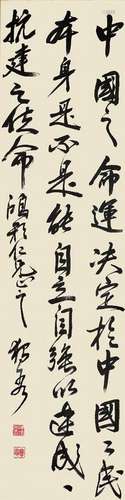 中國之命運決定於中國〻民
本身是不是能自立自強以達成
抗建之使命 仁兄正之